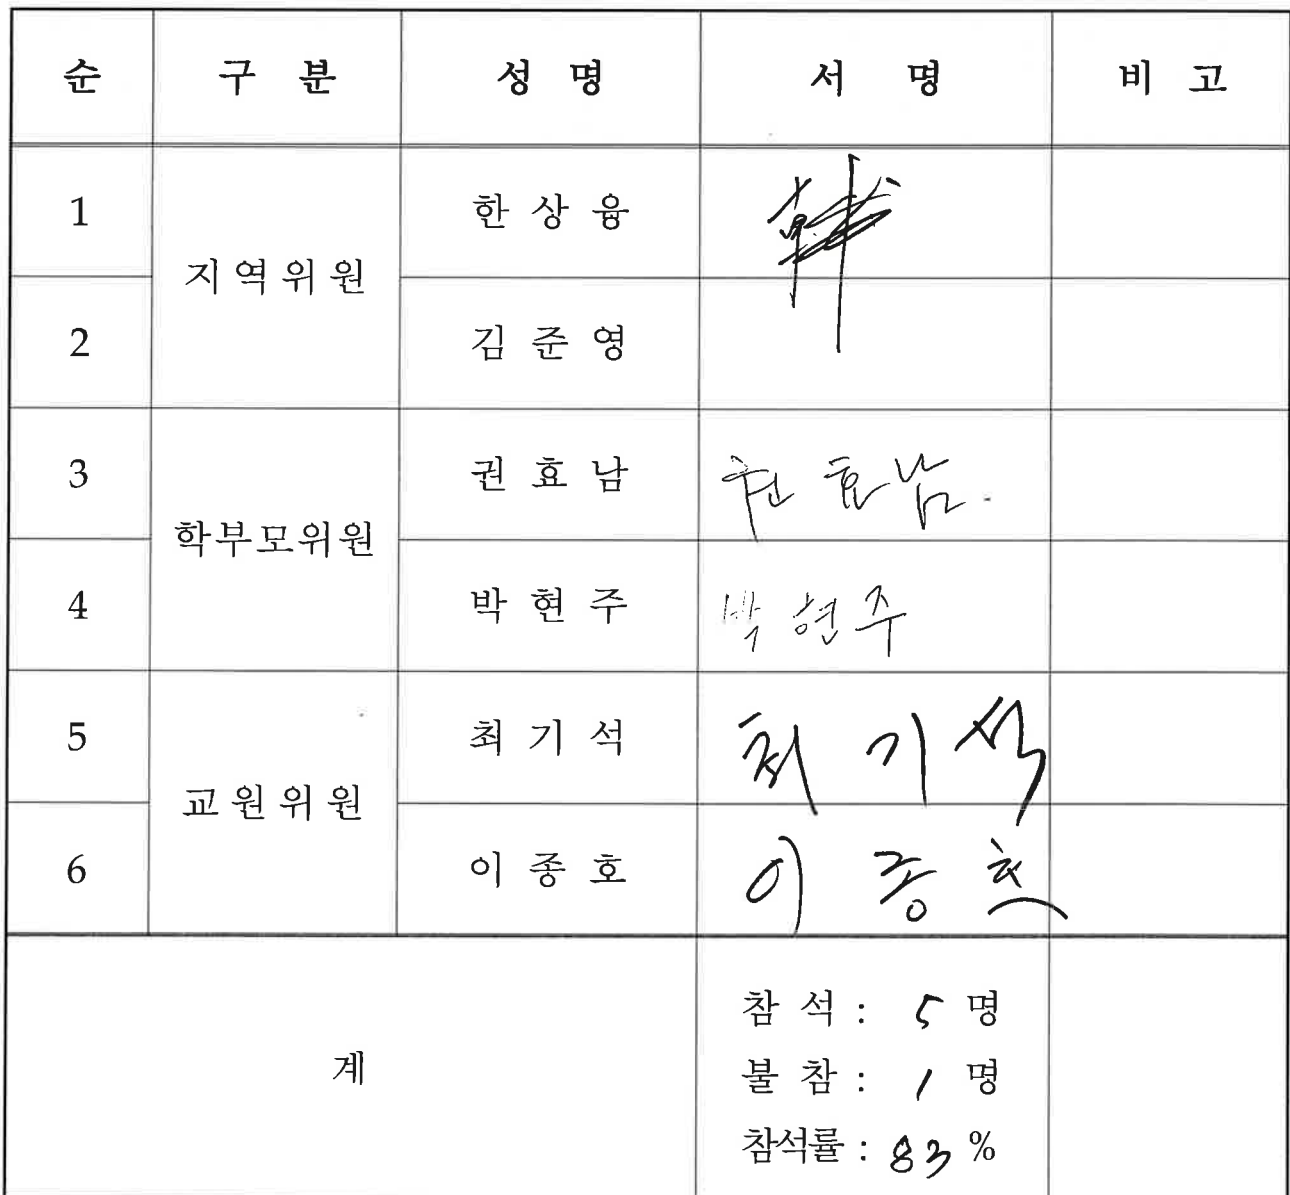 순 구 분 성 명 서 명 비 고
1 지역위원 한 상 융
2 김 준 영
3 학부모위원 권 효 남 권 효 남.
4 박 현 주 박 현 주
5 교원위원 최 기 석 최 기 석
6 이 종 호 이 종 호
계 참 석 : 5 명
불 참 : 1 명
참석률 : 83 %